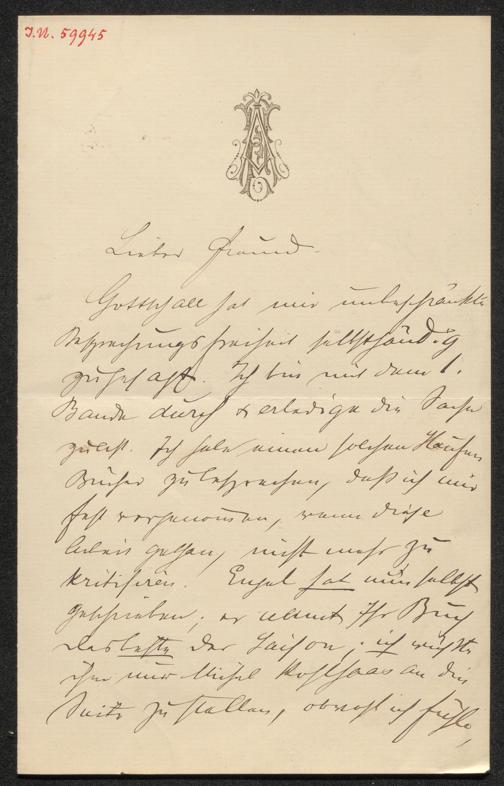 I.N. 59945
Lieber Freund.
Gottschall hat mir unbeschränkte
Besprechungsfreiheit selbstständig
zugesagt. Ich bin mit dem 1.
Bande durch & erledige die Sache
zuerst. Ich habe einen solchen Haufen
Bücher zu besprechen, daß ich mir
fest vorgenommen, wenn diese
Arbeit gethan, nicht mehr zu
kritisiren. Engel hat mir selbst
geschrieben, er nennt Ihr Buch
das beste der Saison; ich wüßte
ihm nur Michel Kohlhaas an die
Seite zu stellen, obwohl ich fühle,